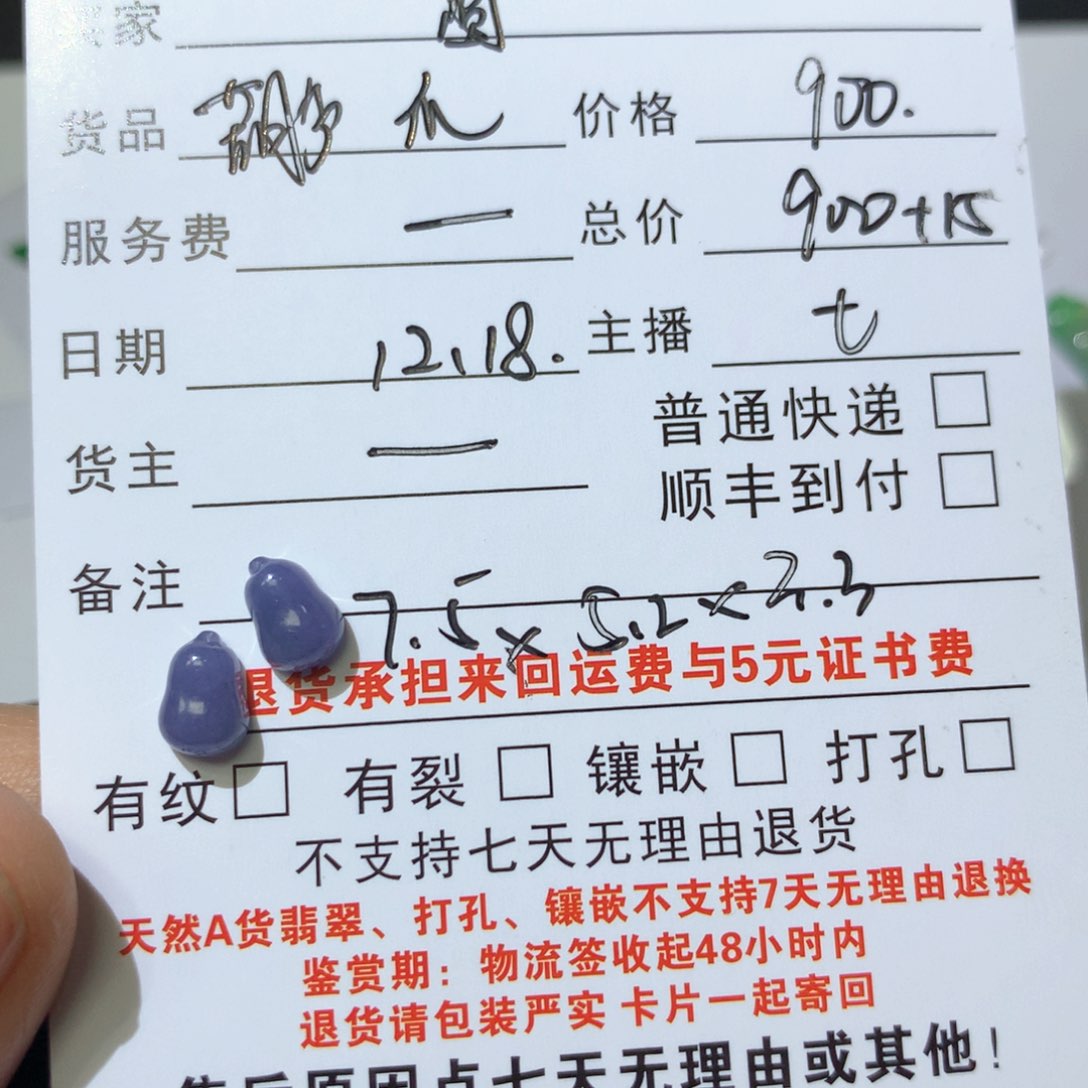 家
货品 葫芦 爪 价格 900.
服务费 一 总价 900+15
日期 12.18. 主播 七
货主 一 普通快递 □
顺丰到付 □
备注 7.5×5.2×2.3
退货承担来回运费与5元证书费
有纹 □ 有裂 □ 镶嵌 □ 打孔 □
不支持七天无理由退货
天然A货翡翠、打孔、镶嵌不支持7天无理由退换
鉴赏期：物流签收起48小时内
退货请包装严实 卡片一起寄回
售后原因点七天无理由或其他！